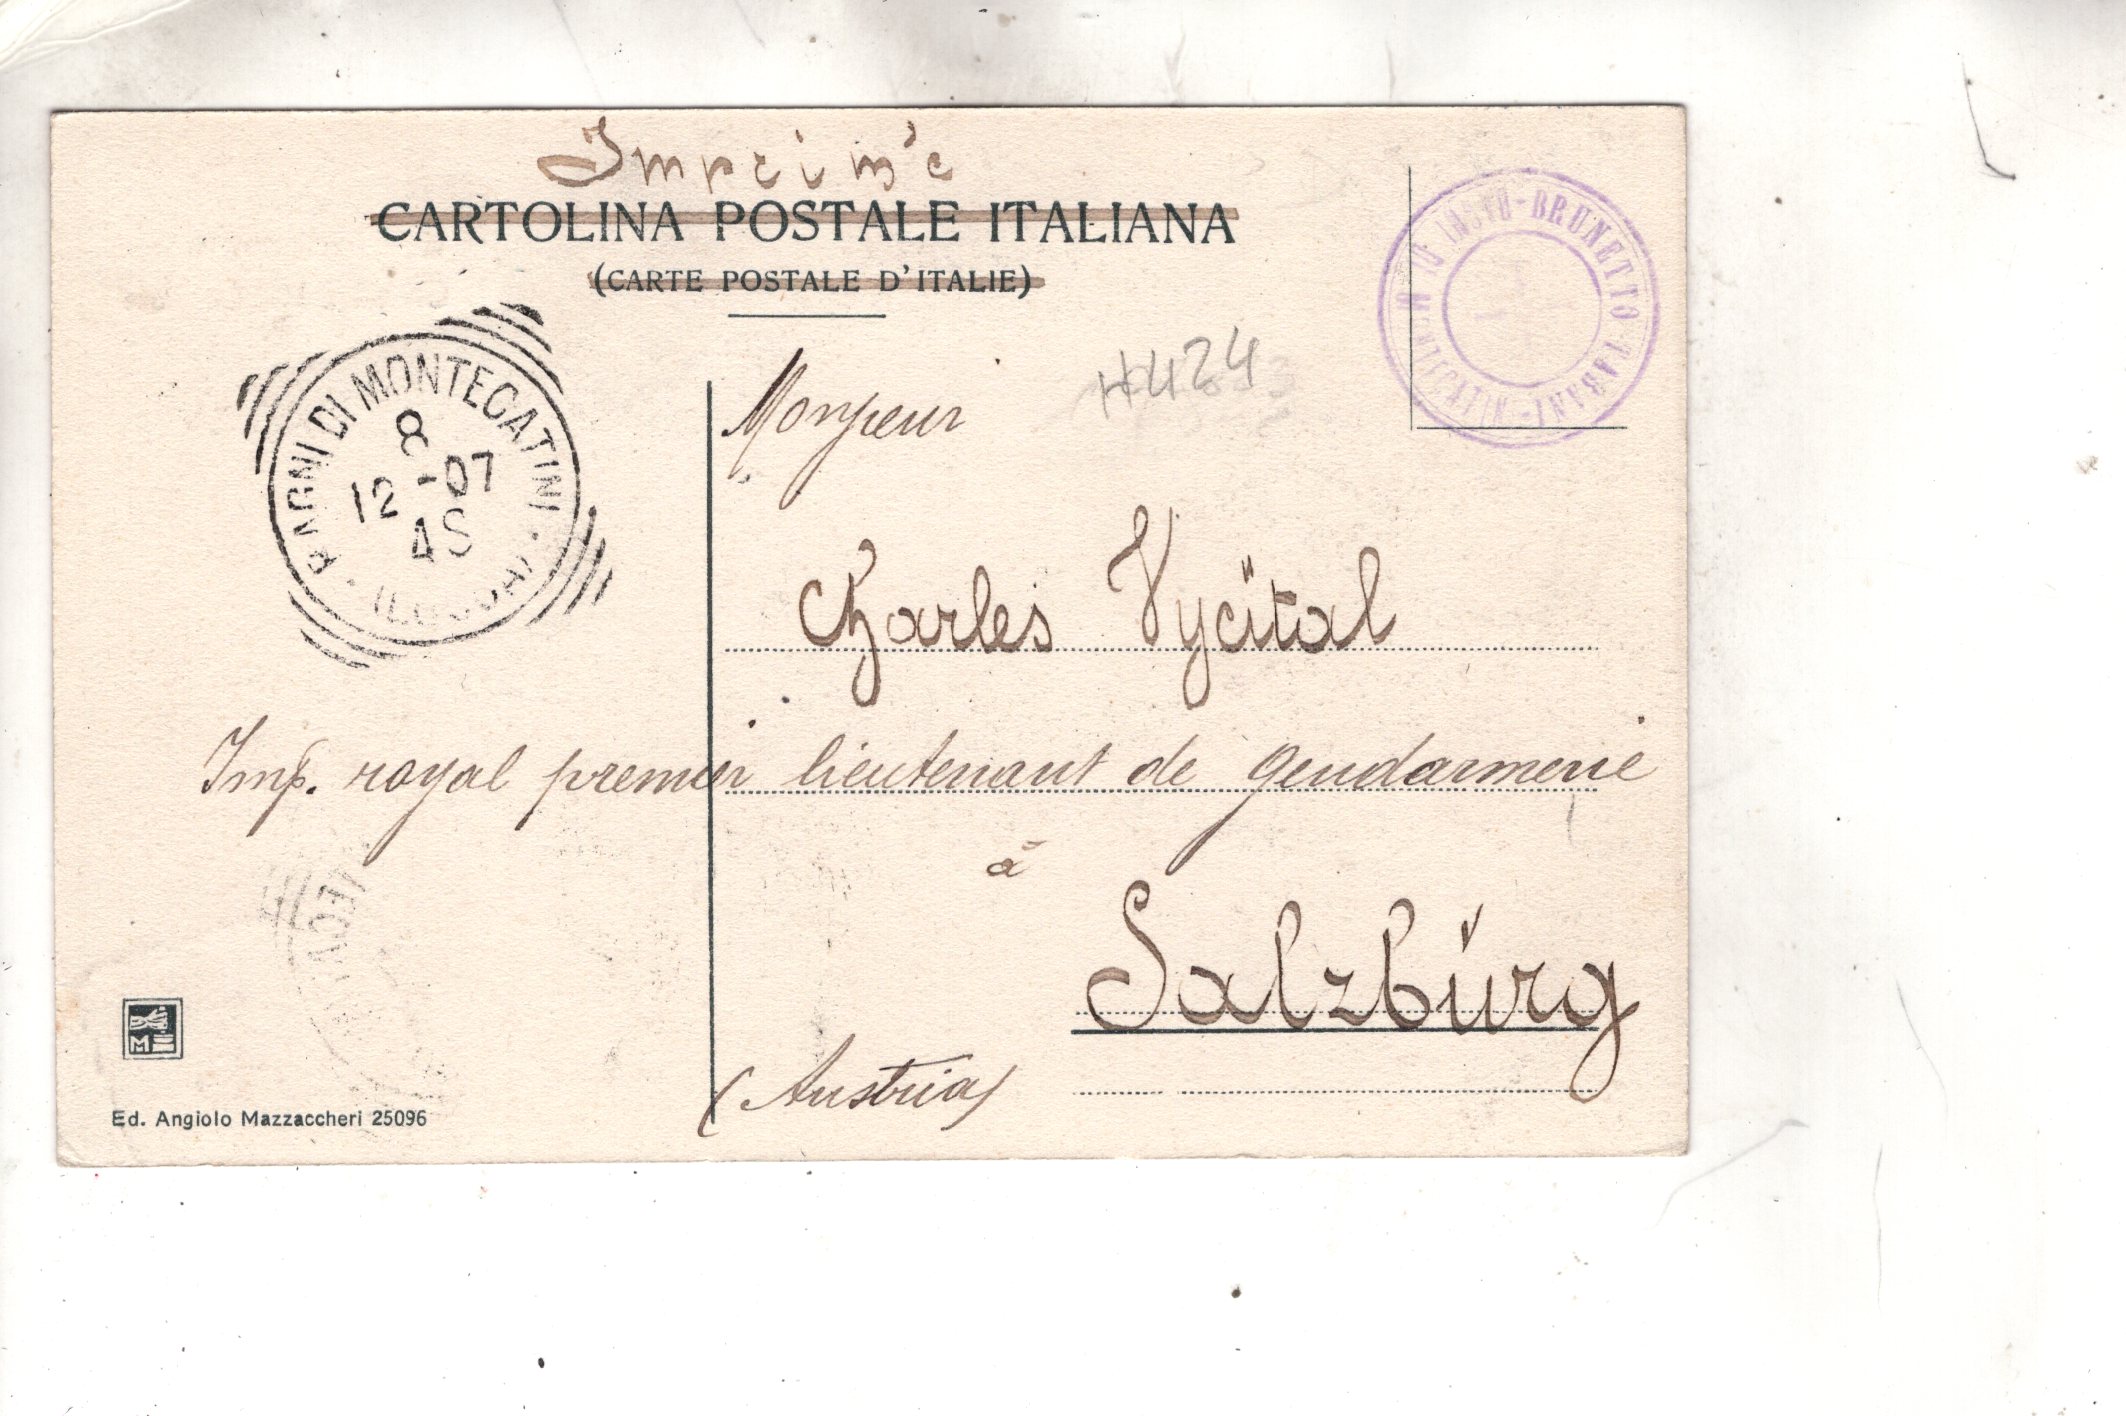 Imprim'e
CARTOLINA POSTALE ITALIANA
(CARTE POSTALE D'ITALIE)
BAGNI DI MONTECATINI
8
12 -07
4S
BRUNETTO
H424
Monsieur
Charles Vycital
Imp. royal premier lieutenant de gendarmerie
à
Salzburg
(Austria)
M
Ed. Angiolo Mazzaccheri 25096